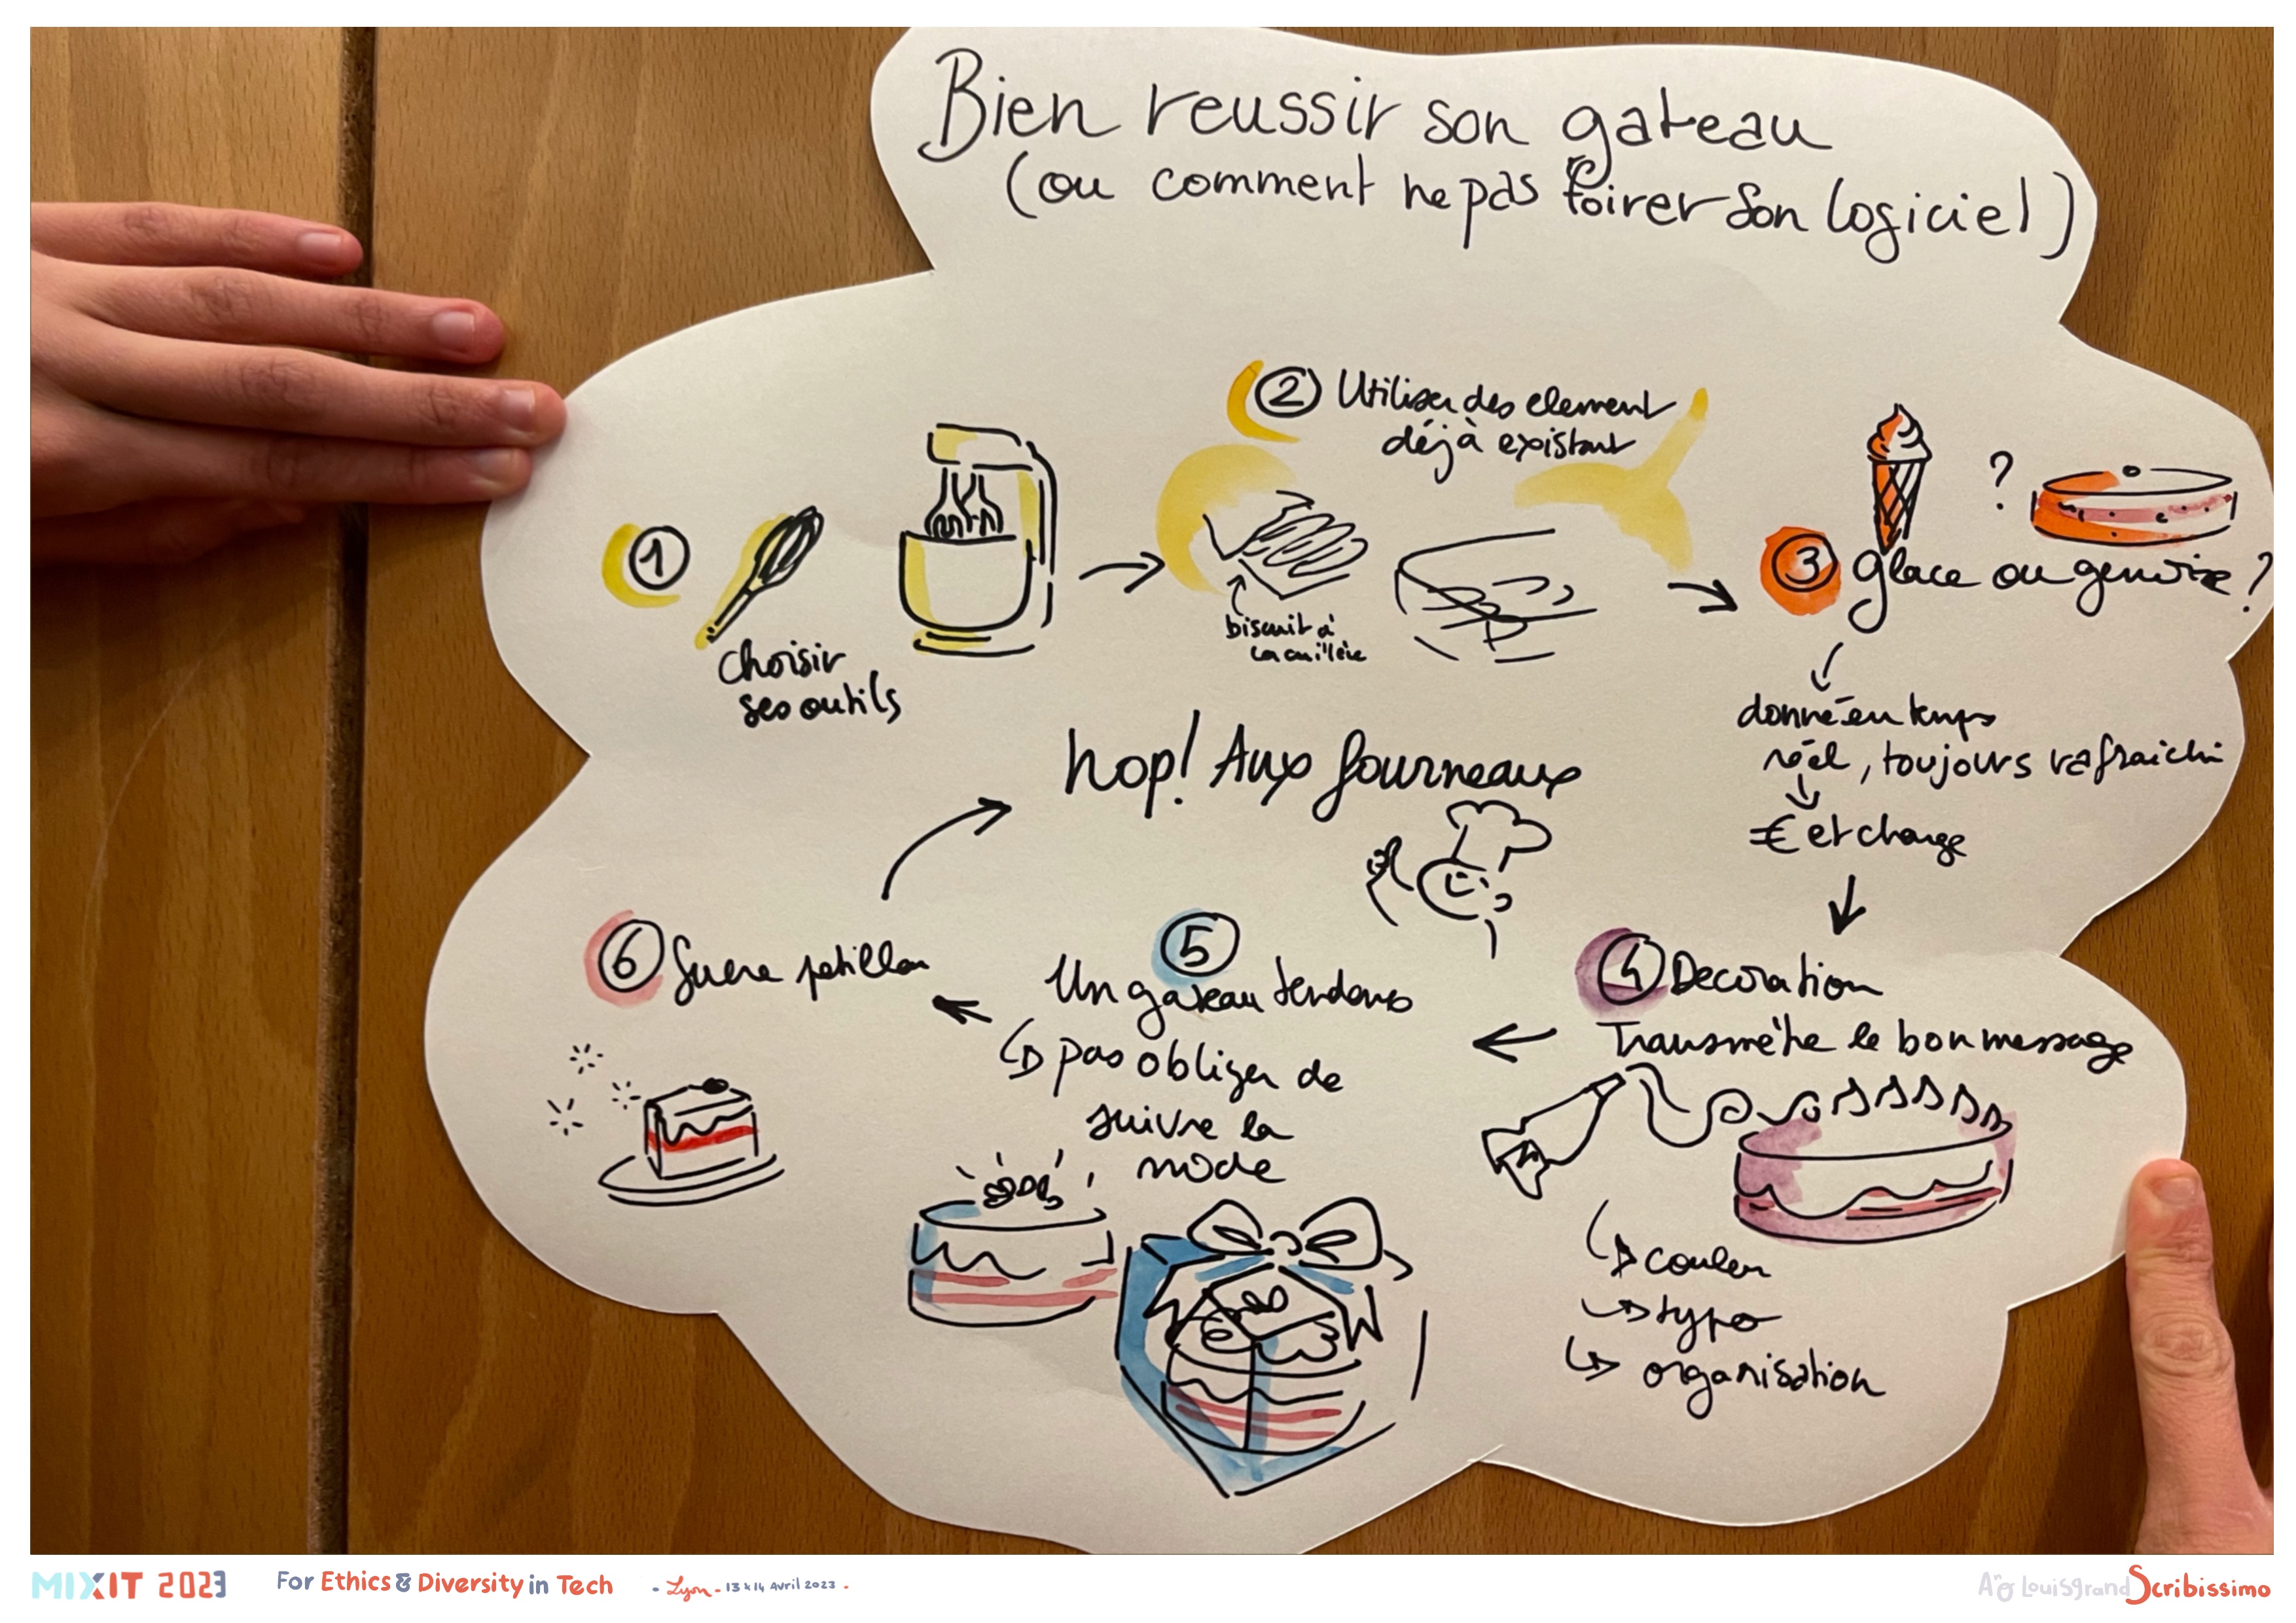 Bien reussir son gateau
(ou comment ne pas foirer son logiciel)
1
choisir
ses outils
2 Utiliser des element
déjà existant
biscuit à
la cuillère
?
3 glace ou genoise ?
donné en temps
réél, toujours rafraichi
€ et change
4 Decoration
Transmètre le bon message
couleur
typo
organisation
5
Un gateau tendans
pas obliger de
suivre la
mode
6 Sucre petillan
hop! Aux fourneaux
MIXIT 2023 For Ethics & Diversity in Tech - Lyon - 13 & 14 Avril 2023 -
Louisgrand Scribissimo